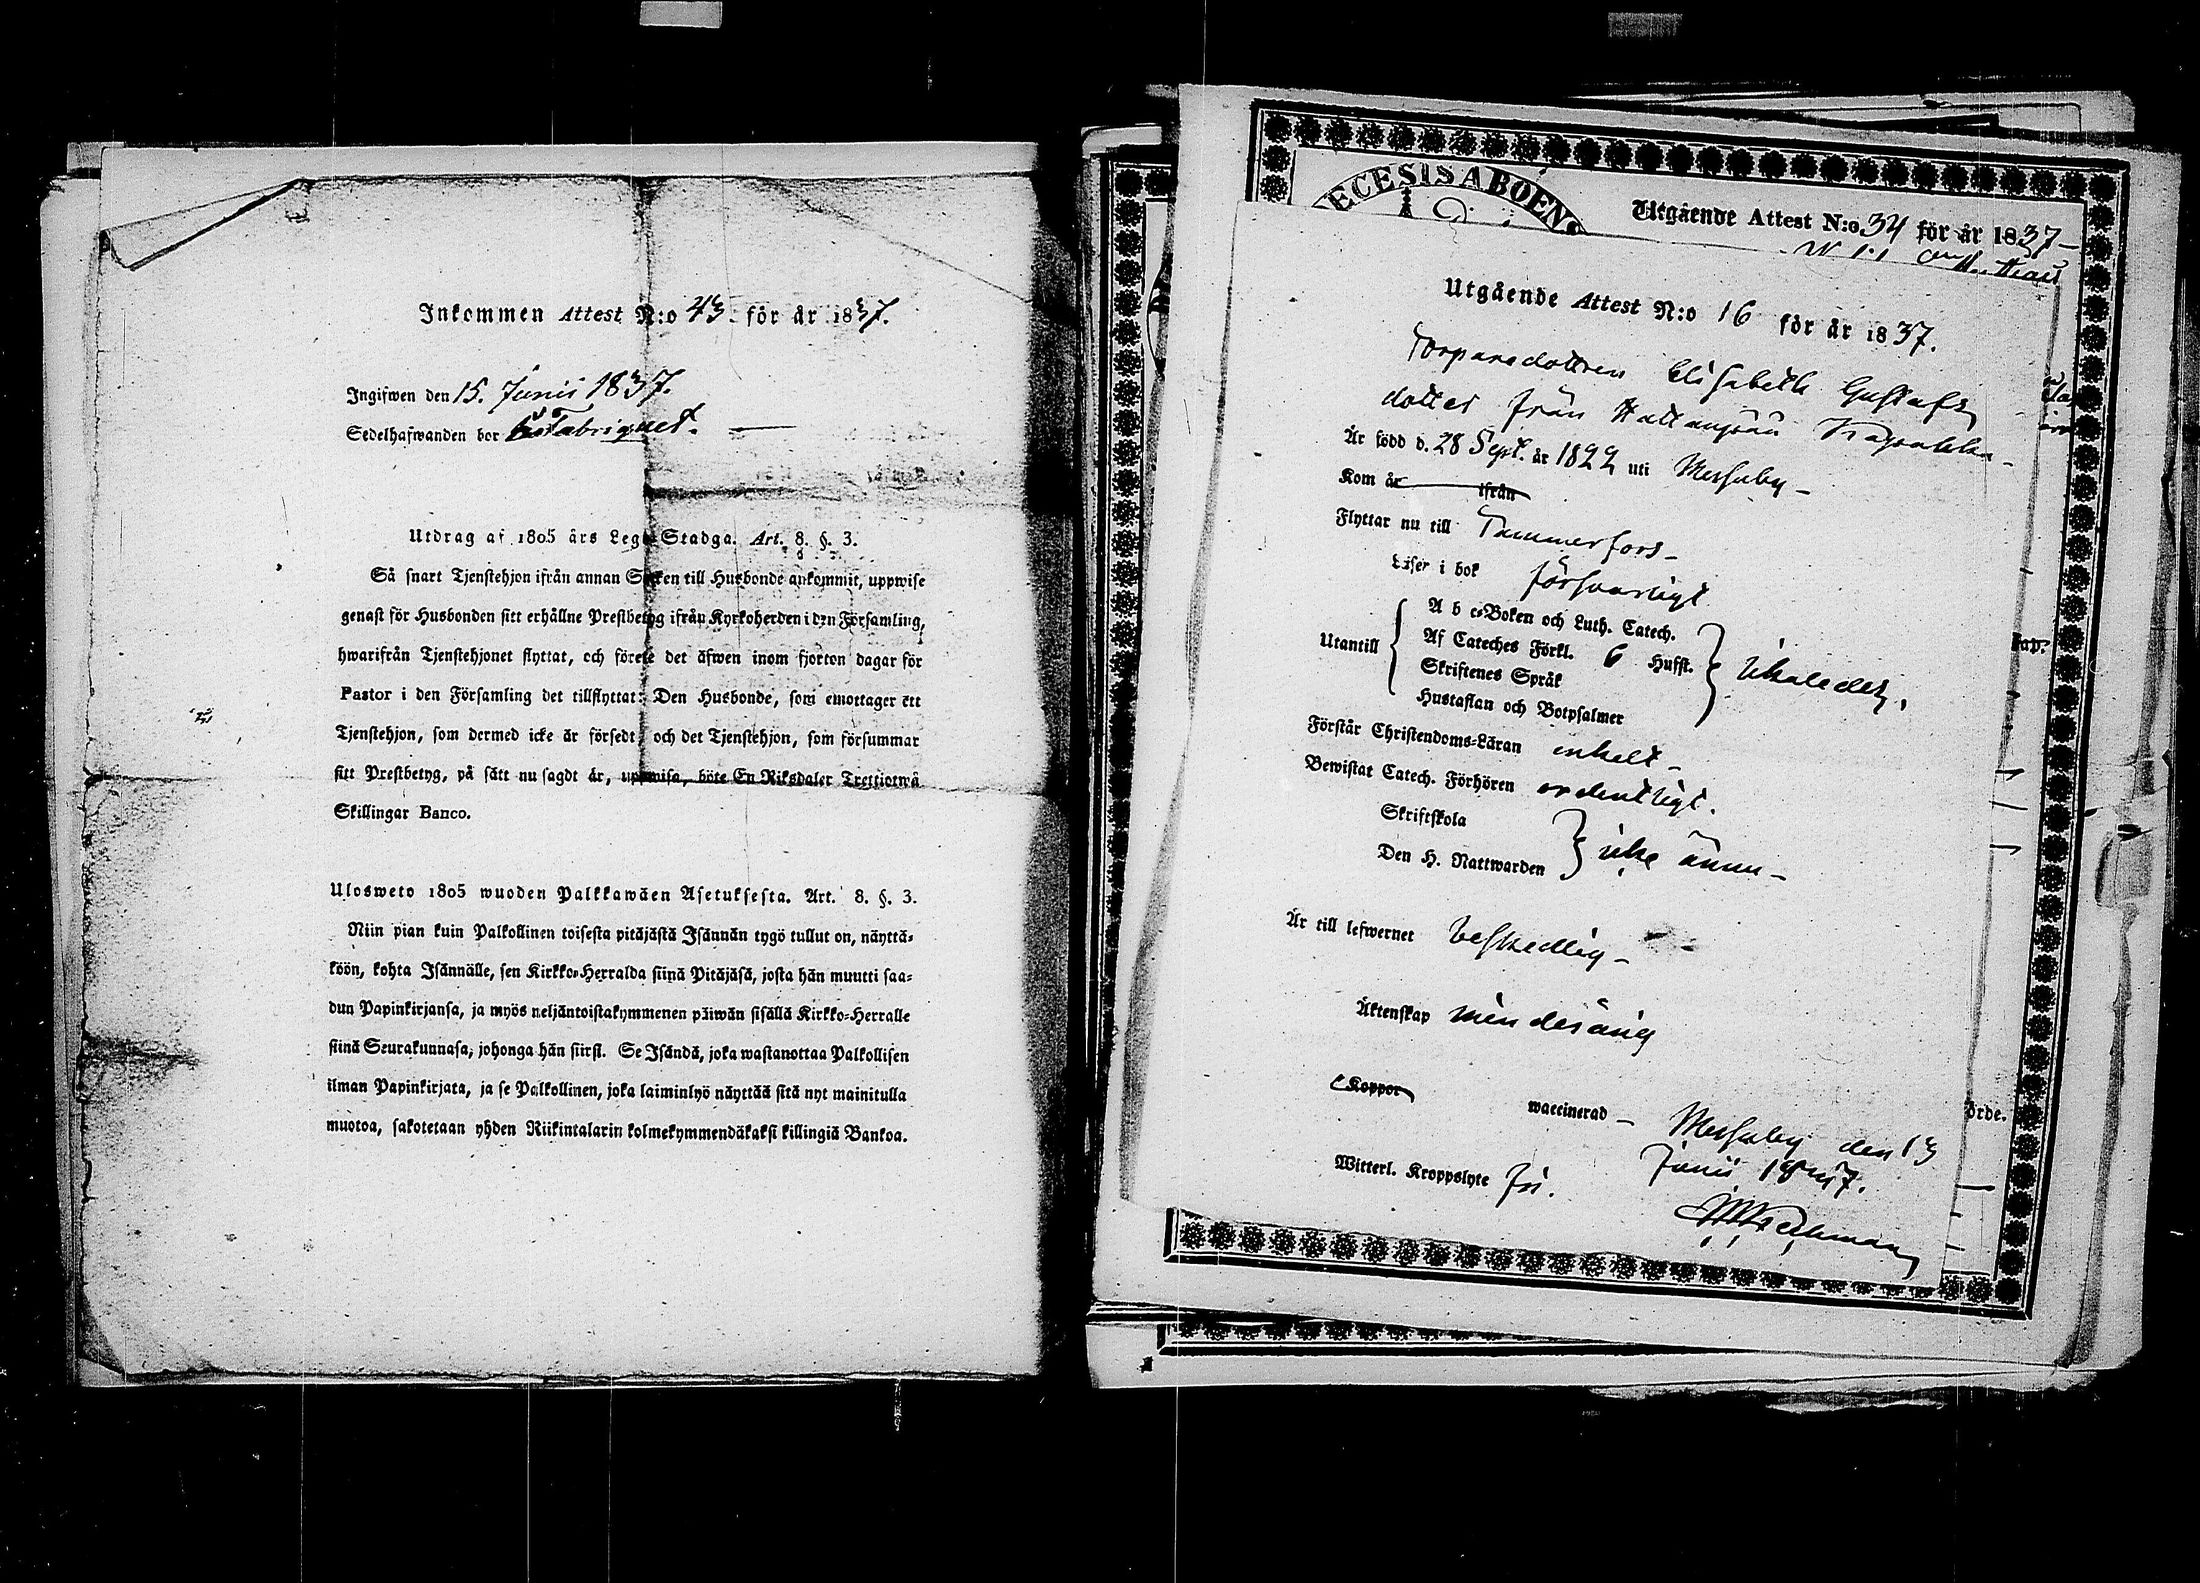 Inkommen Attest N:o 43. för år 1837.
Ingifwen den 15. Junii 1837.
Sedelhafwanden bor Fabriquet. —
Utdrag af 1805 års Lego Stadga. Art. 8. §. 3.
Så snart Tjenstehjon ifrån annan Socken till Husbonde ankommit, uppwise
genast för Husbonden sitt erhållne Prestbetyg ifrån Kyrkoherden i den Församling,
hwarifrån Tjenstehjonet flyttat, och förete det äfwen inom fjorton dagar för
Pastor i den Församling det tillflyttat: Den Husbonde, som emottager ett
Tjenstehjon, som dermed icke är försedt, och det Tjenstehjon, som försummar
sitt Prestbetyg, på sätt nu sagdt är, uppwisa, böte En Riksdaler Trettiotwå
Skillingar Banco.
Ulosweto 1805 wuoden Palkkawäen Asetuksesta. Art. 8. §. 3.
Niin pian kuin Palkollinen toisesta pitäjästä Isännän tygö tullut on, näyttä-
köön, kohta Isännälle, sen Kirkko-Herralda siinä Pitäjäsä, josta hän muutti saa-
dun Papinkirjansa, ja myös neljäntoistakymmenen päiwän sisällä Kirkko-Herralle
siinä Seurakunnasa, johonga hän siirsi. Se Isändä, joka wastanottaa Palkollisen
ilman Papinkirjata, ja se Palkollinen, joka laiminlyö näyttää sitä nyt mainitulla
muotoa, sakotetaan yhden Riikintalarin kolmekymmendäkaksi killingiä Bankoa.
ECESIS ABOENS
Utgående Attest N:o 34 för år 1837—
Utgående Attest N:o 16 för år 1837.
Torparedottren Elisabeth Gustafs
dotter från
Är född d. 28 Sept. år 1822 uti Messuby —
Kom år ifrån
Flyttar nu till Tammerfors —
Läser i bok försvarligt
A b c-Boken och Luth. Catech.
Utantill Af Cateches Förkl. 6 Hufst.
Skriftenes Språk
Hustaflan och Botpsalmer
Förstår Christendoms-Läran enkelt —
Bewistat Catech. Förhören ordentligt.
Skriftskola
Den H. Nattwarden icke ännu —
Är till lefwernet beskedlig —
Äktenskap minderårig
Koppor waccinerad — Messuby den 13
Witterl. Kroppslyte fri. Junii 1837.
åp?
örde.